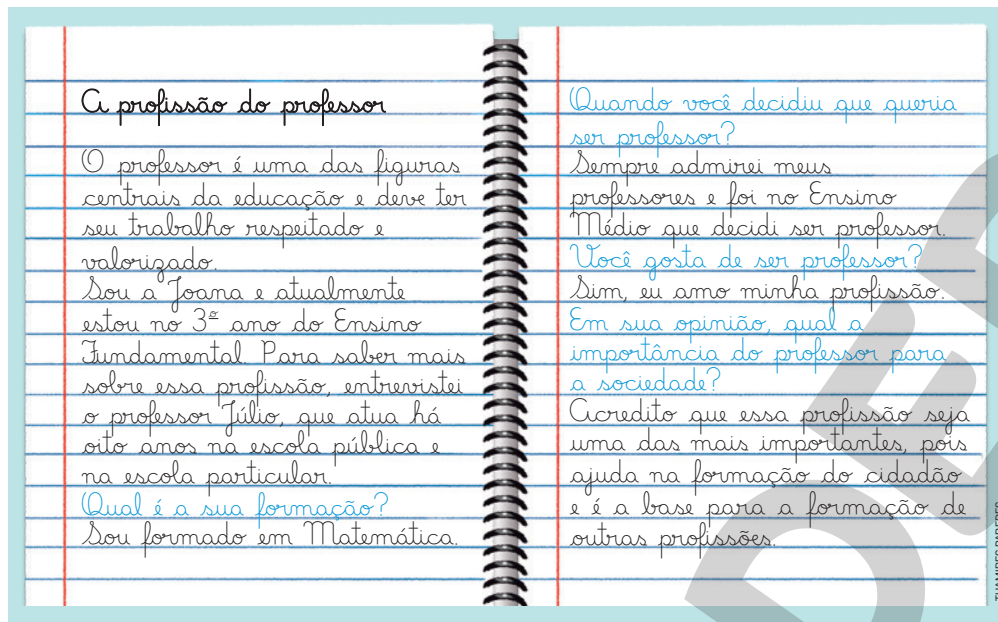 A profissão do professor
O professor é uma das figuras
centrais da educação e deve ter
seu trabalho respeitado e
valorizado.
Sou a Joana e atualmente
estou no 3º ano do Ensino
Fundamental. Para saber mais
sobre essa profissão, entrevistei
o professor Júlio, que atua há
oito anos na escola pública e
na escola particular.
Qual é a sua formação?
Sou formado em Matemática.
Quando você decidiu que queria
ser professor?
Sempre admirei meus
professores e foi no Ensino
Médio que decidi ser professor.
Você gosta de ser professor?
Sim, eu amo minha profissão.
Em sua opinião, qual a
importância do professor para
a sociedade?
Acredito que essa profissão seja
uma das mais importantes, pois
ajuda na formação do cidadão
e é a base para a formação de
outras profissões.